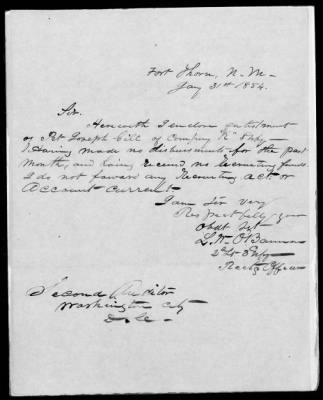 Fort Thorn, N. M.
Jany 31st 1854.
Sir.
Herewith I enclose enlistment
of Pvt Joseph Gill of Company "K" 3 Infy
Having made no disbursements for the past
Month, and having recievd no Recruiting funds
I do not forward any Recruiting act or
Account Current
I am Sir very
Respectfully your
Obdt Svt
L. W. O'Bannon
2d Lt 3 Infy
Rectg Officer
Second Auditor
Washington City
D. C.